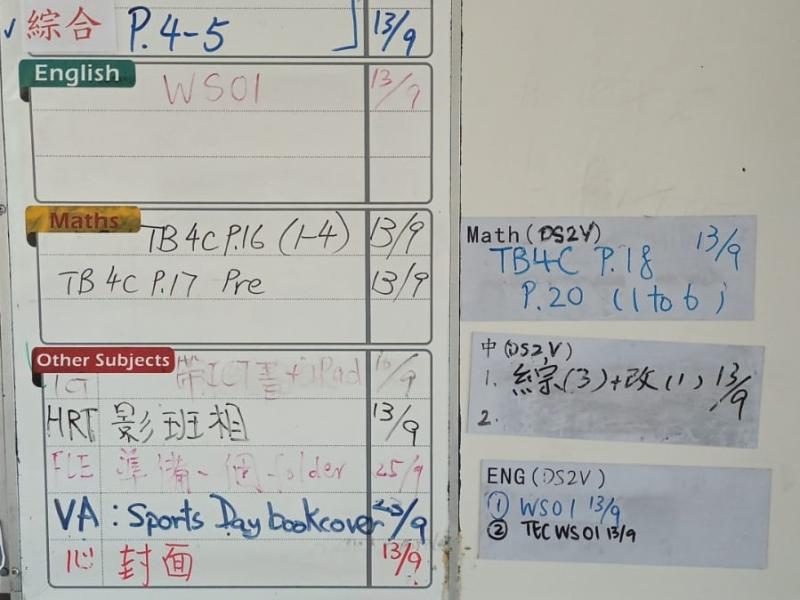 綜合 P.4-5 13/9
English
WS01 13/9
Maths
TB 4C P.16 (1-4) 13/9
TB 4C P.17 Pre 13/9
Other Subjects
帶ICT書+iPad /9
HRT 影班相 13/9
準備一個folder 25/9
VA : Sports Day bookcover 23/9
心 封面 13/9
Math (DS2V) 13/9
TB4C P.18
P.20 (1 to 6)
中 (DS2,V)
1. 綜(3)+改(1) 13/9
2.
ENG (DS2V)
① WS01 13/9
② TEC WS01 13/9